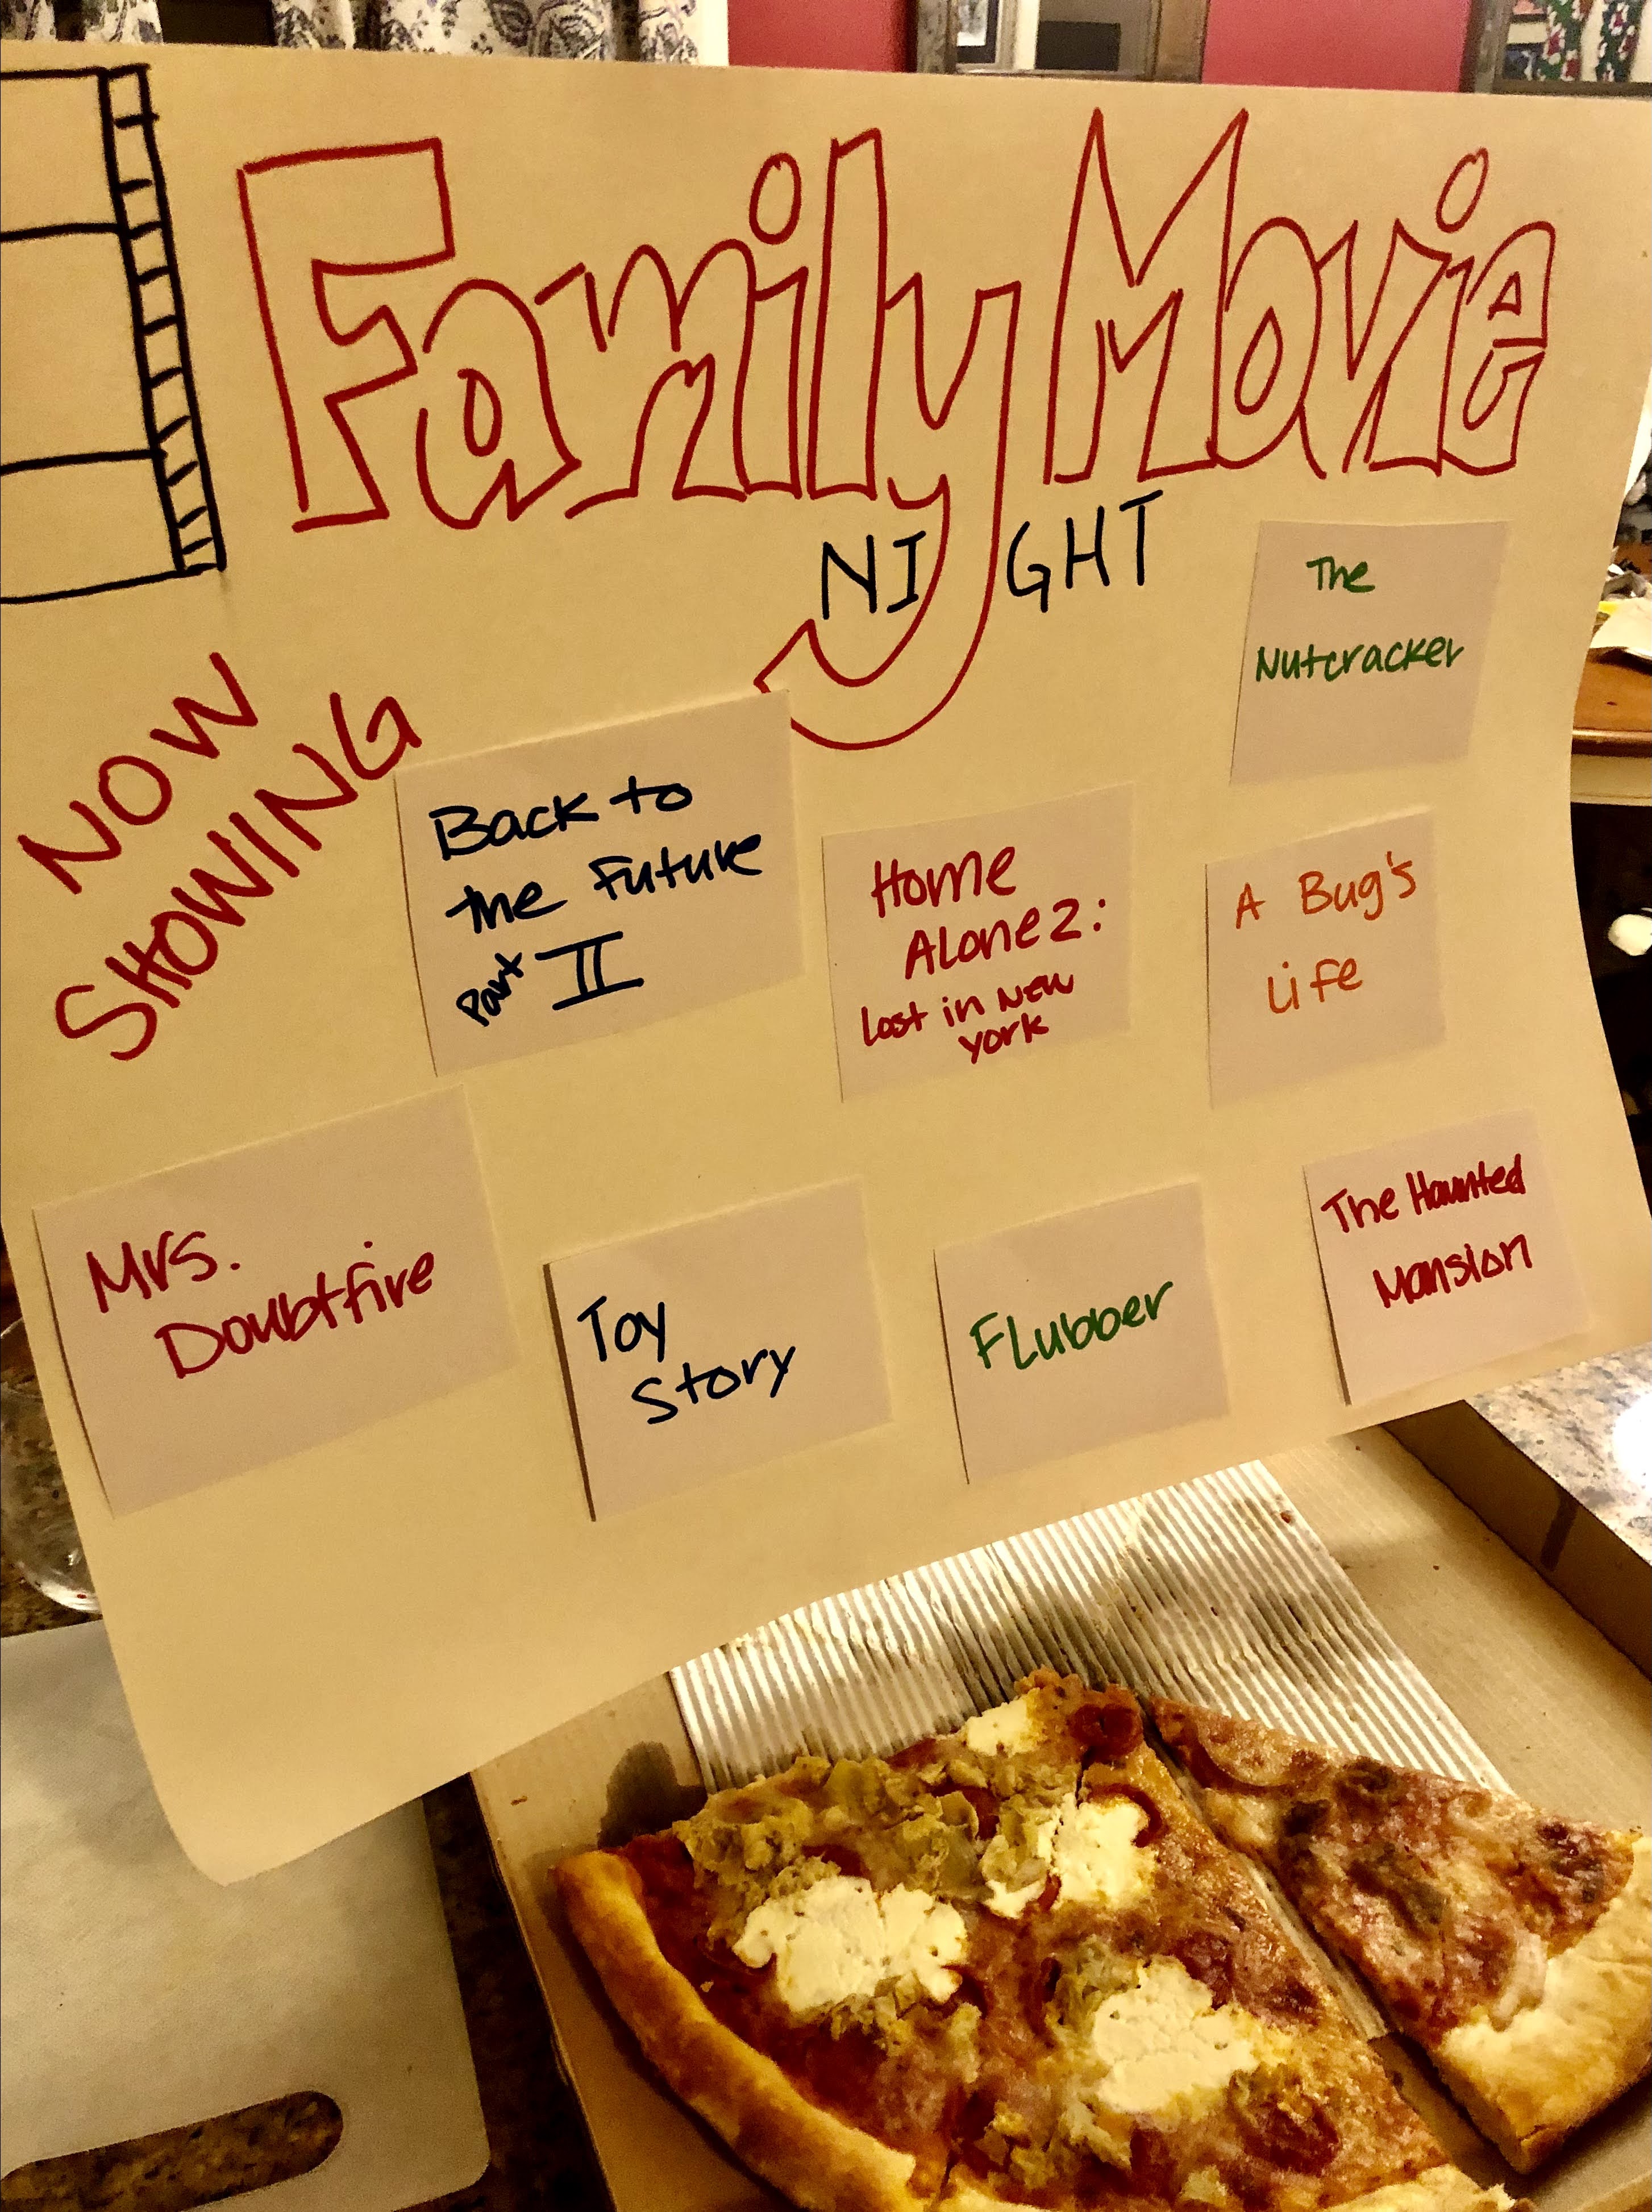 Family Movie
NIGHT
NOW
SHOWING
The
Nutcracker
Back to
the Future
Part II
Home
Alone 2:
Lost in New
York
A Bug's
Life
Mrs.
Doubtfire
Toy
Story
Flubber
The Haunted
Mansion